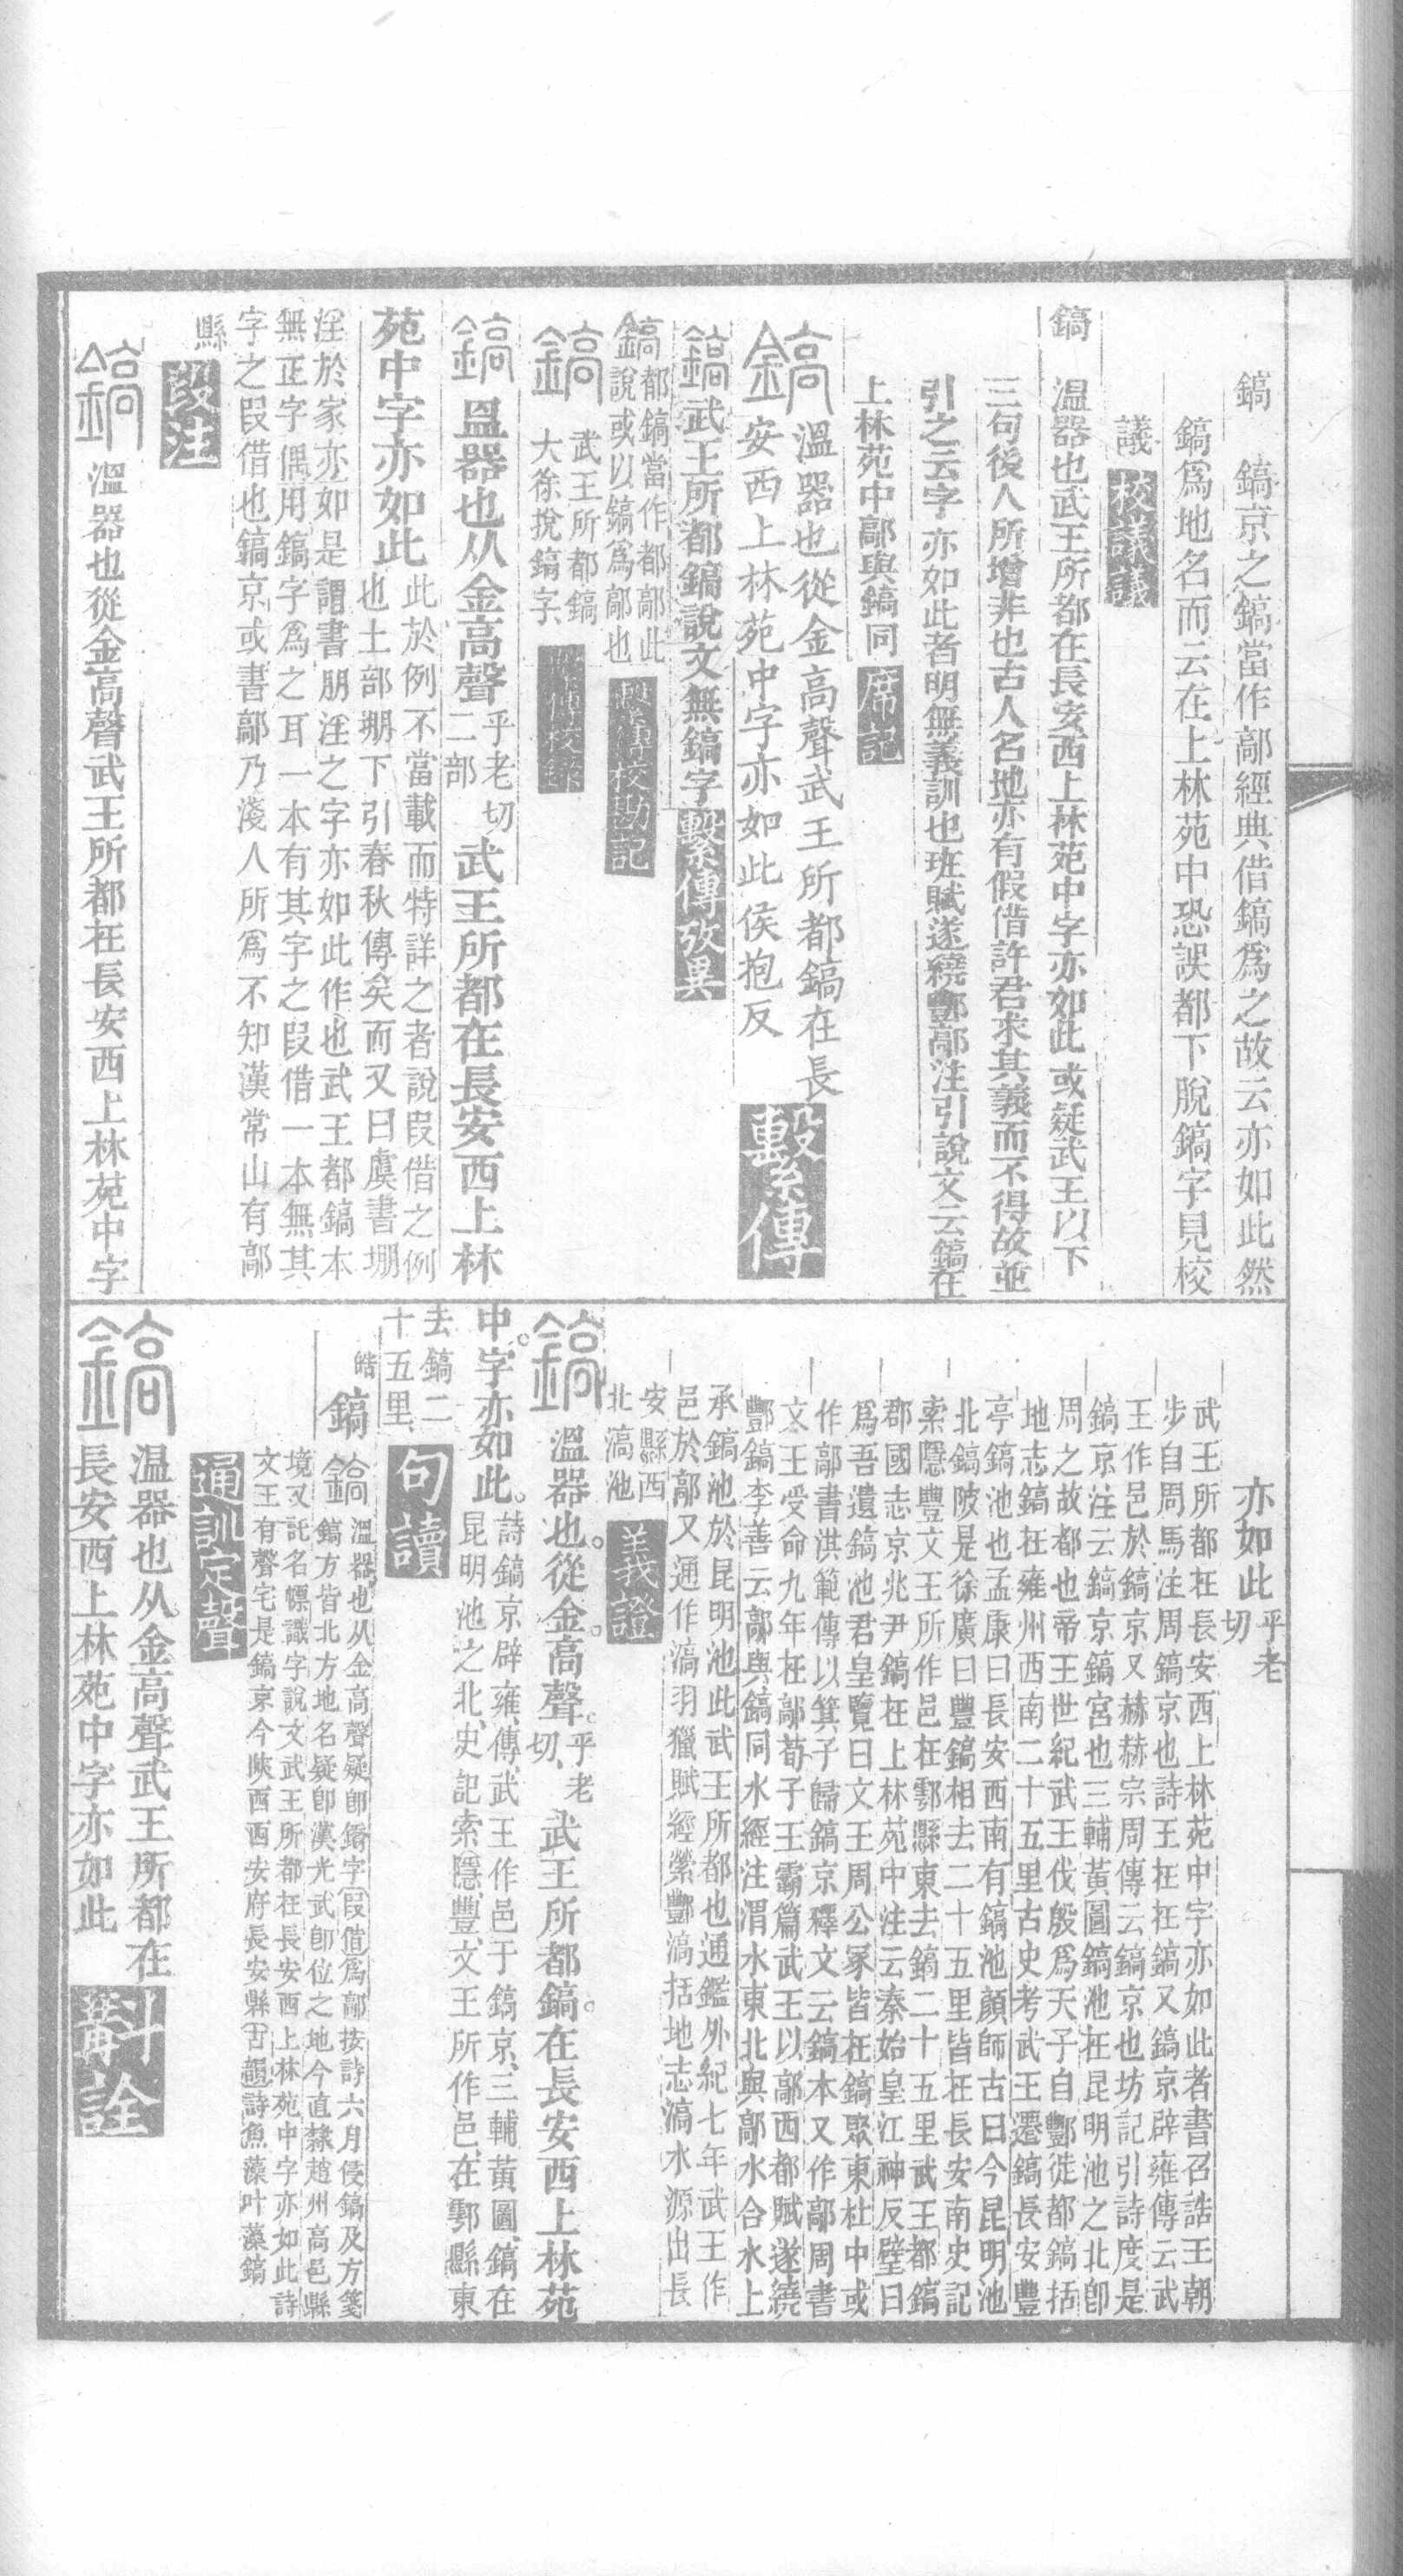 鎬　鎬京之鎬當作鄗經典借鎬爲之故云亦如此然
鎬爲地名而云在上林苑中恐誤都下脫鎬字見校
議 校議議
鎬　溫器也武王所都在長安西上林苑中字亦如此或疑武王以下
三句後人所增非也古人名地亦有假借許君求其義而不得故並
引之云字亦如此者明無義訓也班賦遂繞酆鄗注引說文云鎬在
上林苑中鄗與鎬同 席記
鎬 溫器也從金高聲武王所都鎬在長
安西上林苑中字亦如此侯抱反 繫傳
鎬 武王所都鎬說文無鎬字 繫傳攷異
鎬都鎬當作都鄗此
鎬說或以鎬爲鄗也 繫傳校勘記
鎬 武王所都鎬
大徐挩鎬字 繫傳校錄
鎬 昷器也从金高聲 乎老切
二部 武王所都在長安西上林
苑中字亦如此 此於例不當載而特詳之者說叚借之例
也土部堋下引春秋傳矣而又曰虞書堋
淫於家亦如是謂書朋淫之字亦如此作也武王都鎬本
無正字偶用鎬字爲之耳一本有其字之叚借一本無其
字之叚借也鎬京或書鄗乃淺人所爲不知漢常山有鄗
縣 段注
鎬 溫器也從金高聲武王所都在長安西上林苑中字
亦如此 乎老
切
武王所都在長安西上林苑中字亦如此者書召誥王朝
步自周馬注周鎬京也詩王在在鎬又鎬京辟雍傳云武
王作邑於鎬京又赫赫宗周傳云鎬京也坊記引詩度是
鎬京注云鎬京鎬宮也三輔黃圖鎬池在昆明池之北卽
周之故都也帝王世紀武王伐殷爲天子自酆徙都鎬括
地志鎬在雍州西南二十五里古史考武王遷鎬長安豐
亭鎬池也孟康曰長安西南有鎬池顏師古曰今昆明池
北鎬陂是徐廣曰豐鎬相去二十五里皆在長安南史記
索隱豐文王所作邑在鄠縣東去鎬二十五里武王都鎬
郡國志京兆尹鎬在上林苑中注云秦始皇江神反璧曰
爲吾遺鎬池君皇覽曰文王周公冢皆在鎬聚東杜中或
作鄗書洪範傳以箕子歸鎬京釋文云鎬本又作鄗周書
文王受命九年在鄗荀子王霸篇武王以鄗西都賦遂繞
酆鎬李善云鄗與鎬同水經注渭水東北與鄗水合水上
承鎬池於昆明池此武王所都也通鑑外紀七年武王作
邑於鄗又通作滈羽獵賦經營酆滈括地志滈水源出長
安縣西
北滈池 義證
鎬 溫器也。從金。高聲。 乎老
切、 武王所都鎬。在長安西上林苑
中。字亦如此。 詩鎬京辟雍傳、武王作邑于鎬京、三輔黃圖、鎬在
昆明池之北、史記索隱、豐、文王所作邑、在鄠縣東
去鎬二
十五里、 句讀
皓
鎬 鎬 溫器也从金高聲疑卽鐈字 叚借 爲鄗按詩六月侵鎬及方箋
鎬方皆北方地名疑卽漢光武卽位之地今直隸趙州高邑縣
境又託名幖識字說文武王所都在長安西上林苑中字亦如此詩
文王有聲宅是鎬京今陝西西安府長安縣 古韻 詩魚藻叶藻鎬
通訓定聲
鎬 温器也从金高聲武王所都在
長安西上林苑中字亦如此 斠詮